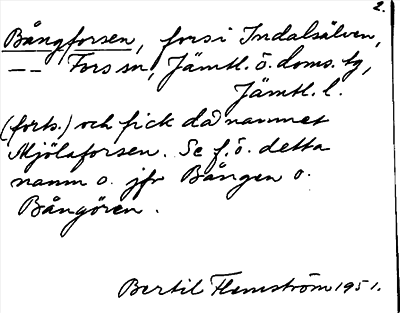 2.
Bångforsen, fors i Indalsälven,
—— Fors sn, Jämtl. ö. doms. tg,
Jämtl. l.
(forts.) och fick då namnet
Mjölaforsen. Se f. ö. detta
namn o. jfr Bången o.
Bångören.
Bertil Flemström 1951.